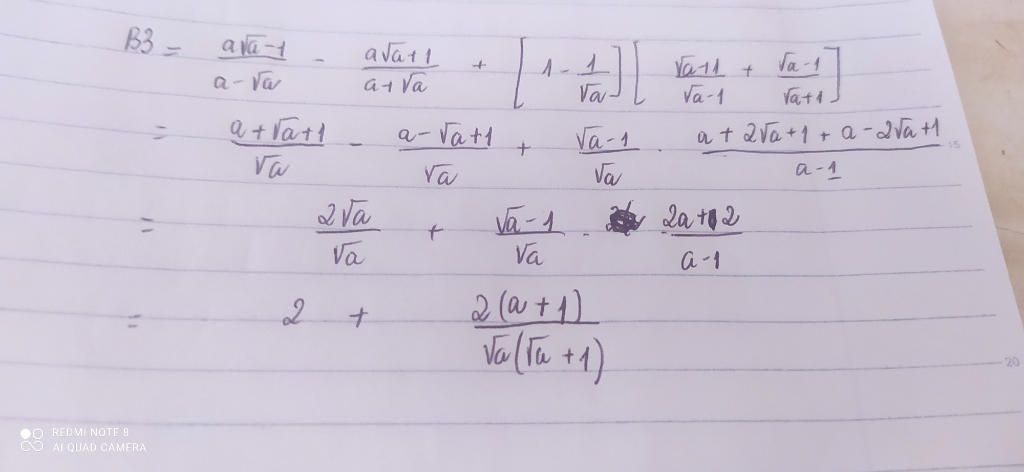 B3 = (a√a-1)/(a-√a) - (a√a+1)/(a+√a) + [1 - 1/√a] [(√a+1)/(√a-1) + (√a-1)/(√a+1)]
= (a+√a+1)/√a - (a-√a+1)/√a + (√a-1)/√a . (a+2√a+1+a-2√a+1)/(a-1)
15
= 2√a/√a + (√a-1)/√a . (2a+2)/(a-1)
= 2 + 2(a+1)/(√a(√a+1))
20
REDMI NOTE 8
AI QUAD CAMERA